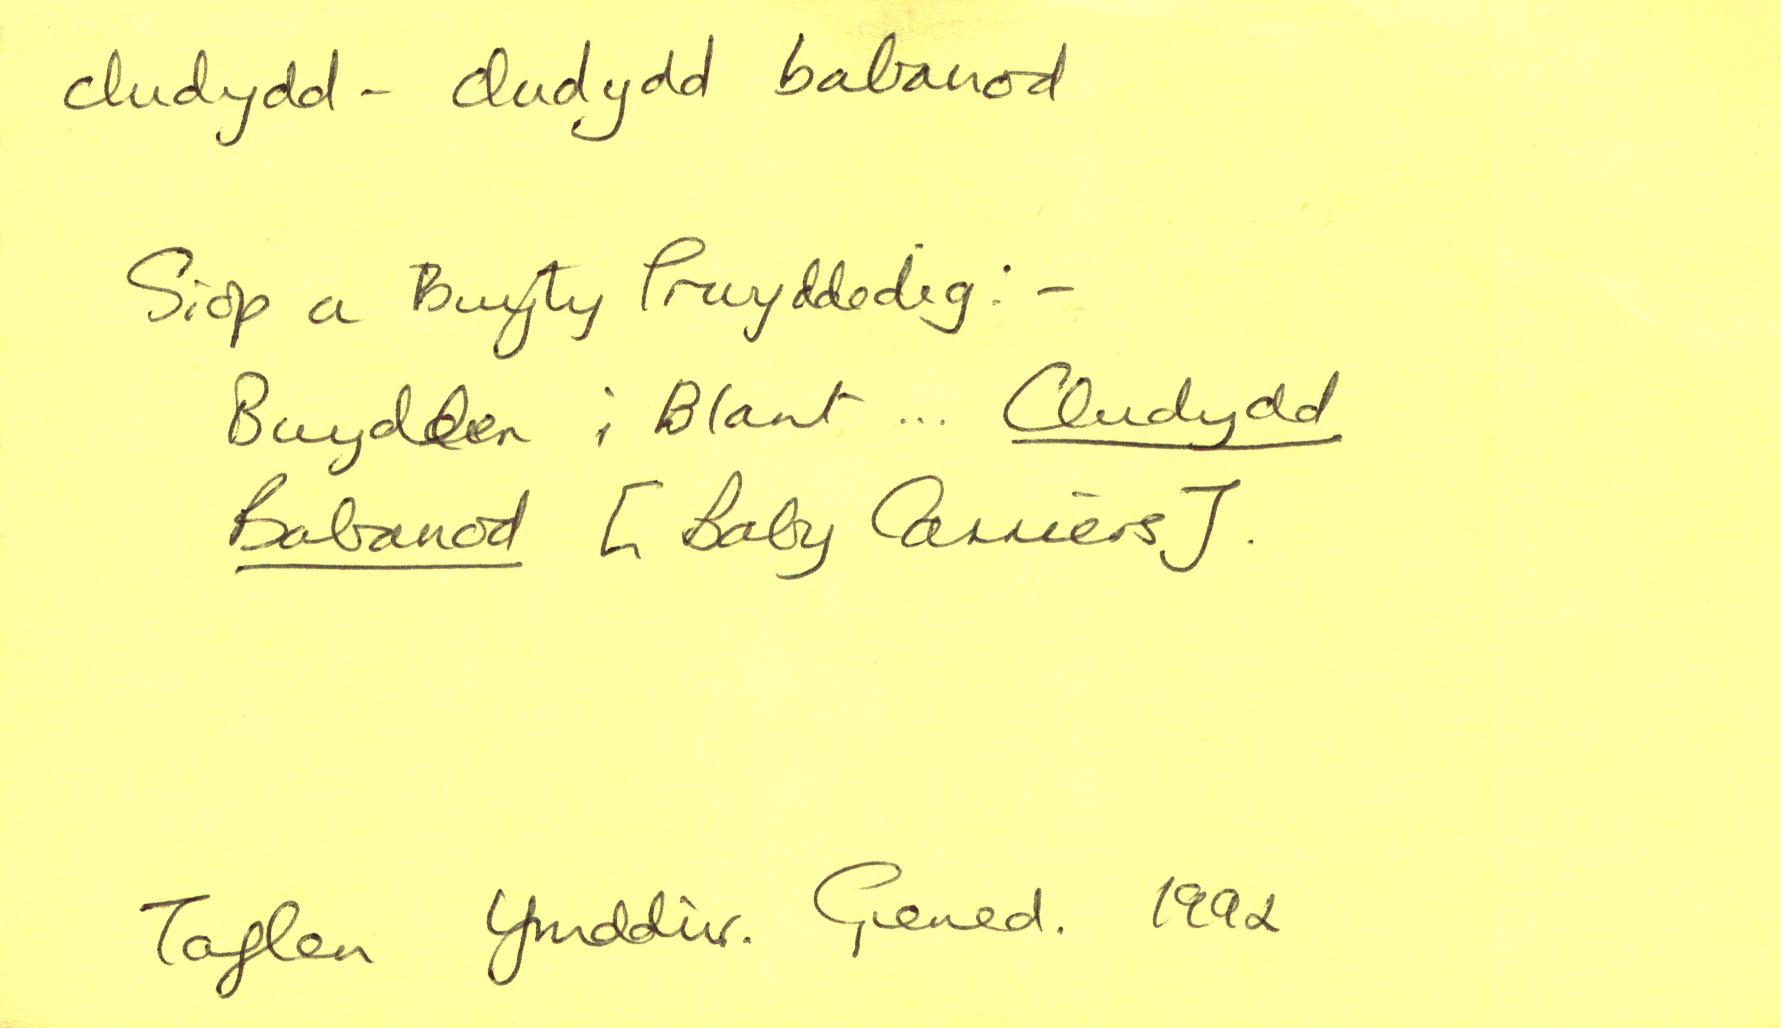 cludydd - cludydd babanod
Siop a Bwyty Trwyddedig:-
Bwydlen i Blant ... Cludydd
Babanod [Baby Carriers].
Taflen Ymddir. Gened. 1992